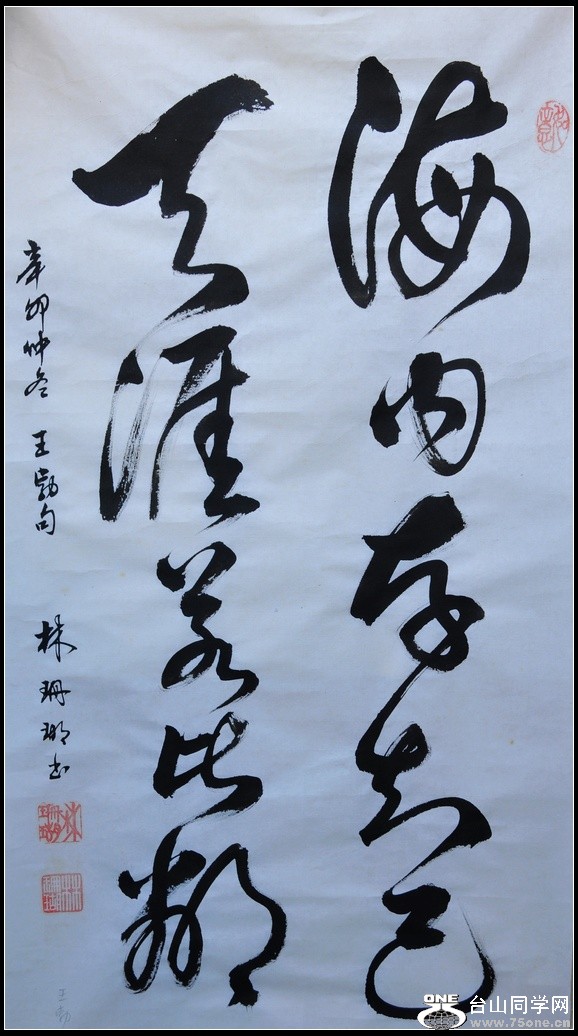 海内存知己
天涯若比邻
辛卯仲冬 王勃句
林珊瑚书
王勃
ONE
75
台山同学网
www.75one.cn